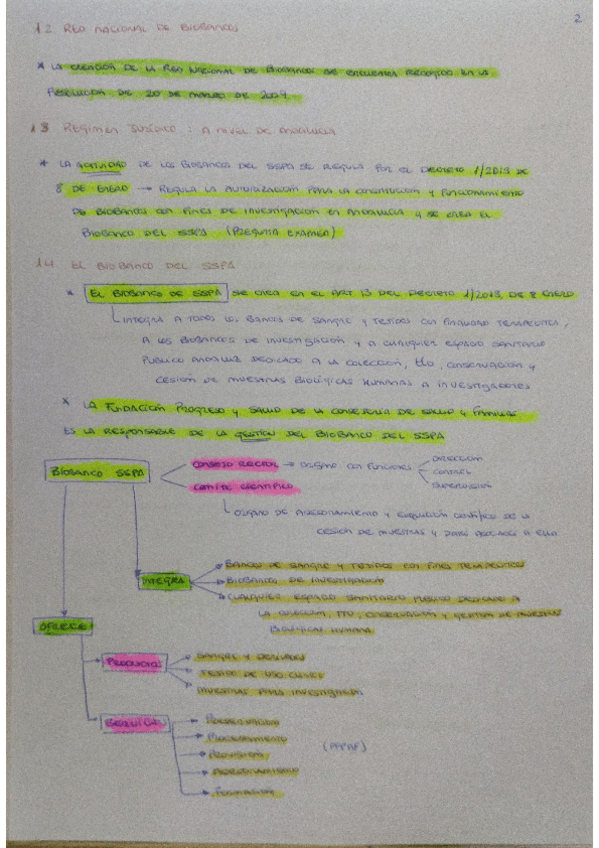 2
1.2 RED NACIONAL DE BIOBANCOS
* LA CREACIÓN DE LA RED NACIONAL DE BIOBANCOS SE ENCUENTRA RECOGIDO EN LA
RESOLUCIÓN DE 20 DE MARZO DE 2009.
1.3 RÉGIMEN JURÍDICO: A NIVEL DE ANDALUCÍA
* LA ACTIVIDAD DE LOS BIOBANCOS DEL SSPA SE REGULA POR EL DECRETO 1/2013 DE
8 DE ENERO → REGULA LA AUTORIZACIÓN PARA LA CONSTITUCIÓN Y FUNCIONAMIENTO
DE BIOBANCOS CON FINES DE INVESTIGACIÓN EN ANDALUCÍA Y SE CREA EL
BIOBANCO DEL SSPA (PREGUNTA EXAMEN)
1.4 EL BIOBANCO DEL SSPA
* EL BIOBANCO DE SSPA SE CREA EN EL ART 13 DEL DECRETO 1/2013, DE 8 ENERO
INTEGRA A TODOS LOS BANCOS DE SANGRE Y TEJIDOS CON FINALIDAD TERAPEUTICA,
A LOS BIOBANCOS DE INVESTIGACIÓN Y A CUALQUIER ESPACIO SANITARIO
PUBLICO ANDALUZ DEDICADO A LA COLECCIÓN, tto, CONSERVACIÓN Y
CESIÓN DE MUESTRAS BIOLÓGICAS HUMANAS A INVESTIGADORES
* LA FUNDACIÓN PROGRESO Y SALUD DE LA CONSEJERÍA DE SALUD Y FAMILIAS
ES LA RESPONSABLE DE LA GESTIÓN DEL BIOBANCO DEL SSPA
BIOBANCO SSPA
CONSEJO RECTOR → ORGANO CON FUNCIONES
DIRECCIÓN
CONTROL
SUPERVISIÓN
COMITÉ CIENTÍFICO
ORGANO DE ASESORAMIENTO Y EVALUACIÓN CIENTÍFICO DE LA
CESIÓN DE MUESTRAS Y DATOS ASOCIADOS A ELLA
INTEGRA
BANCO DE SANGRE Y TEJIDOS CON FINES TERAPEUTICOS
BIOBANCOS DE INVESTIGACIÓN
CUALQUIER ESPACIO SANITARIO PUBLICO DEDICADO A
LA COLECCIÓN, TTO, CONSERVACIÓN Y GESTIÓN DE MUESTRAS
BIOLÓGICAS HUMANA
OFRECE
PRODUCTOS
SANGRE Y DERIVADOS
TEJIDO DE USO CLINICO
MUESTRAS PARA INVESTIGACIÓN
SERVICIOS
PRESERVACIÓN
PROCESAMIENTO
(PPPAF)
PROVISIÓN
ASESORAMIENTO
FORMACIÓN